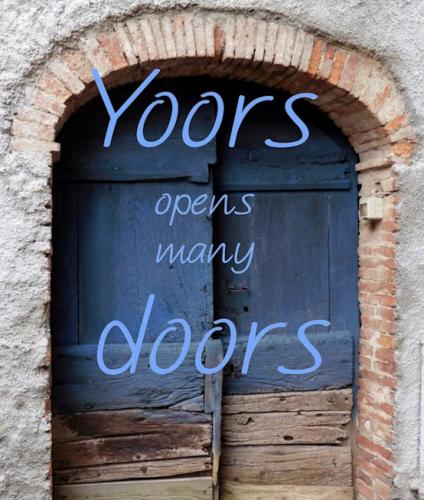 Yoors
opens
many
doors